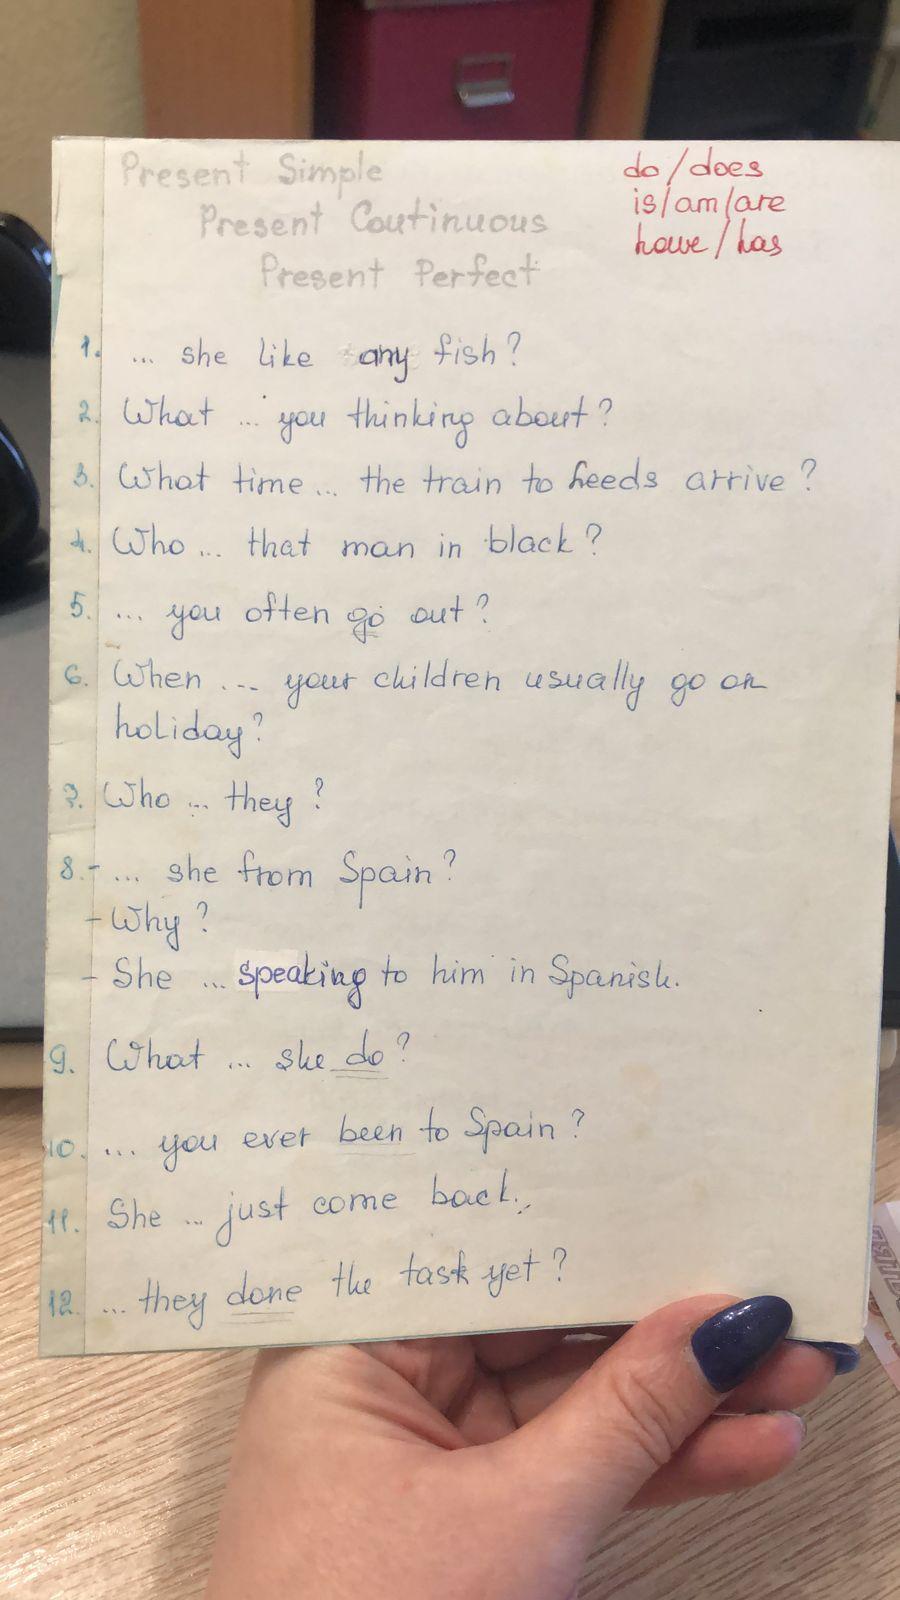 Present Simple
Present Continuous
Present Perfect
do/does
is/am/are
have/has
1. ... she like any fish?
2. What ... you thinking about?
3. What time ... the train to Leeds arrive?
4. Who ... that man in black?
5. ... you often go out?
6. When ... your children usually go on
holiday?
7. Who ... they?
8. - ... she from Spain?
- Why?
- She ... speaking to him in Spanish.
9. What ... she do?
10. ... you ever been to Spain?
11. She ... just come back.
12. ... they done the task yet?